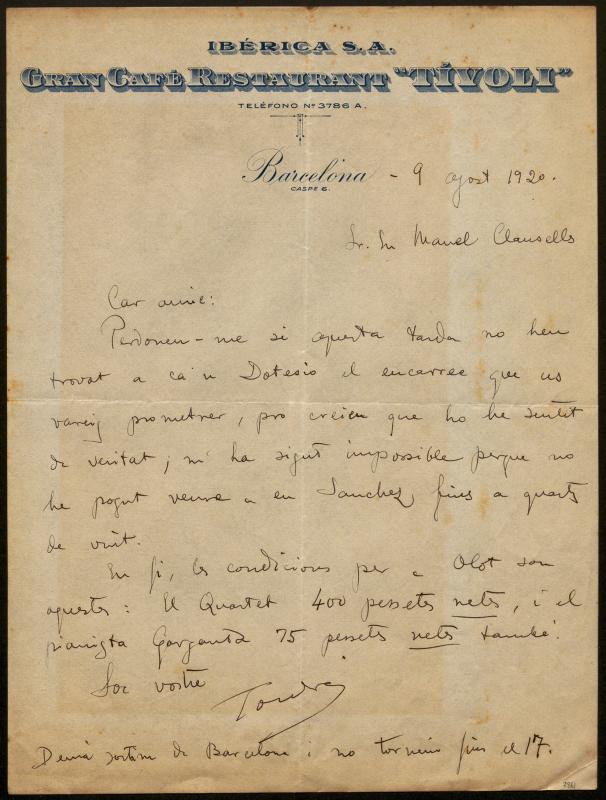 IBÉRICA S.A.
GRAN CAFÉ RESTAURANT "TÍVOLI"
TELÉFONO Nº 3786 A.
Barcelona - 9 agost 1920.
CASPE 6.
Sr. En Manel Clausells
Car amic:
Perdoneu-me si aquesta tarda no heu
trovat a ca'n Dotesio el encarrec que us
vareig prometrer, pro creieu que ho he sentit
de veritat; m'ha sigut impossible perque no
he pogut veure a en Sanchez, fins a quarts
de vuit.
En fi, les condicions per a Olot son
aquestes: El Quartet 400 pessetes netes, i el
pianista Garganta 75 pessetes netes també.
Soc vostre
Demá sortim de Barcelona i no tornem fins el 17.